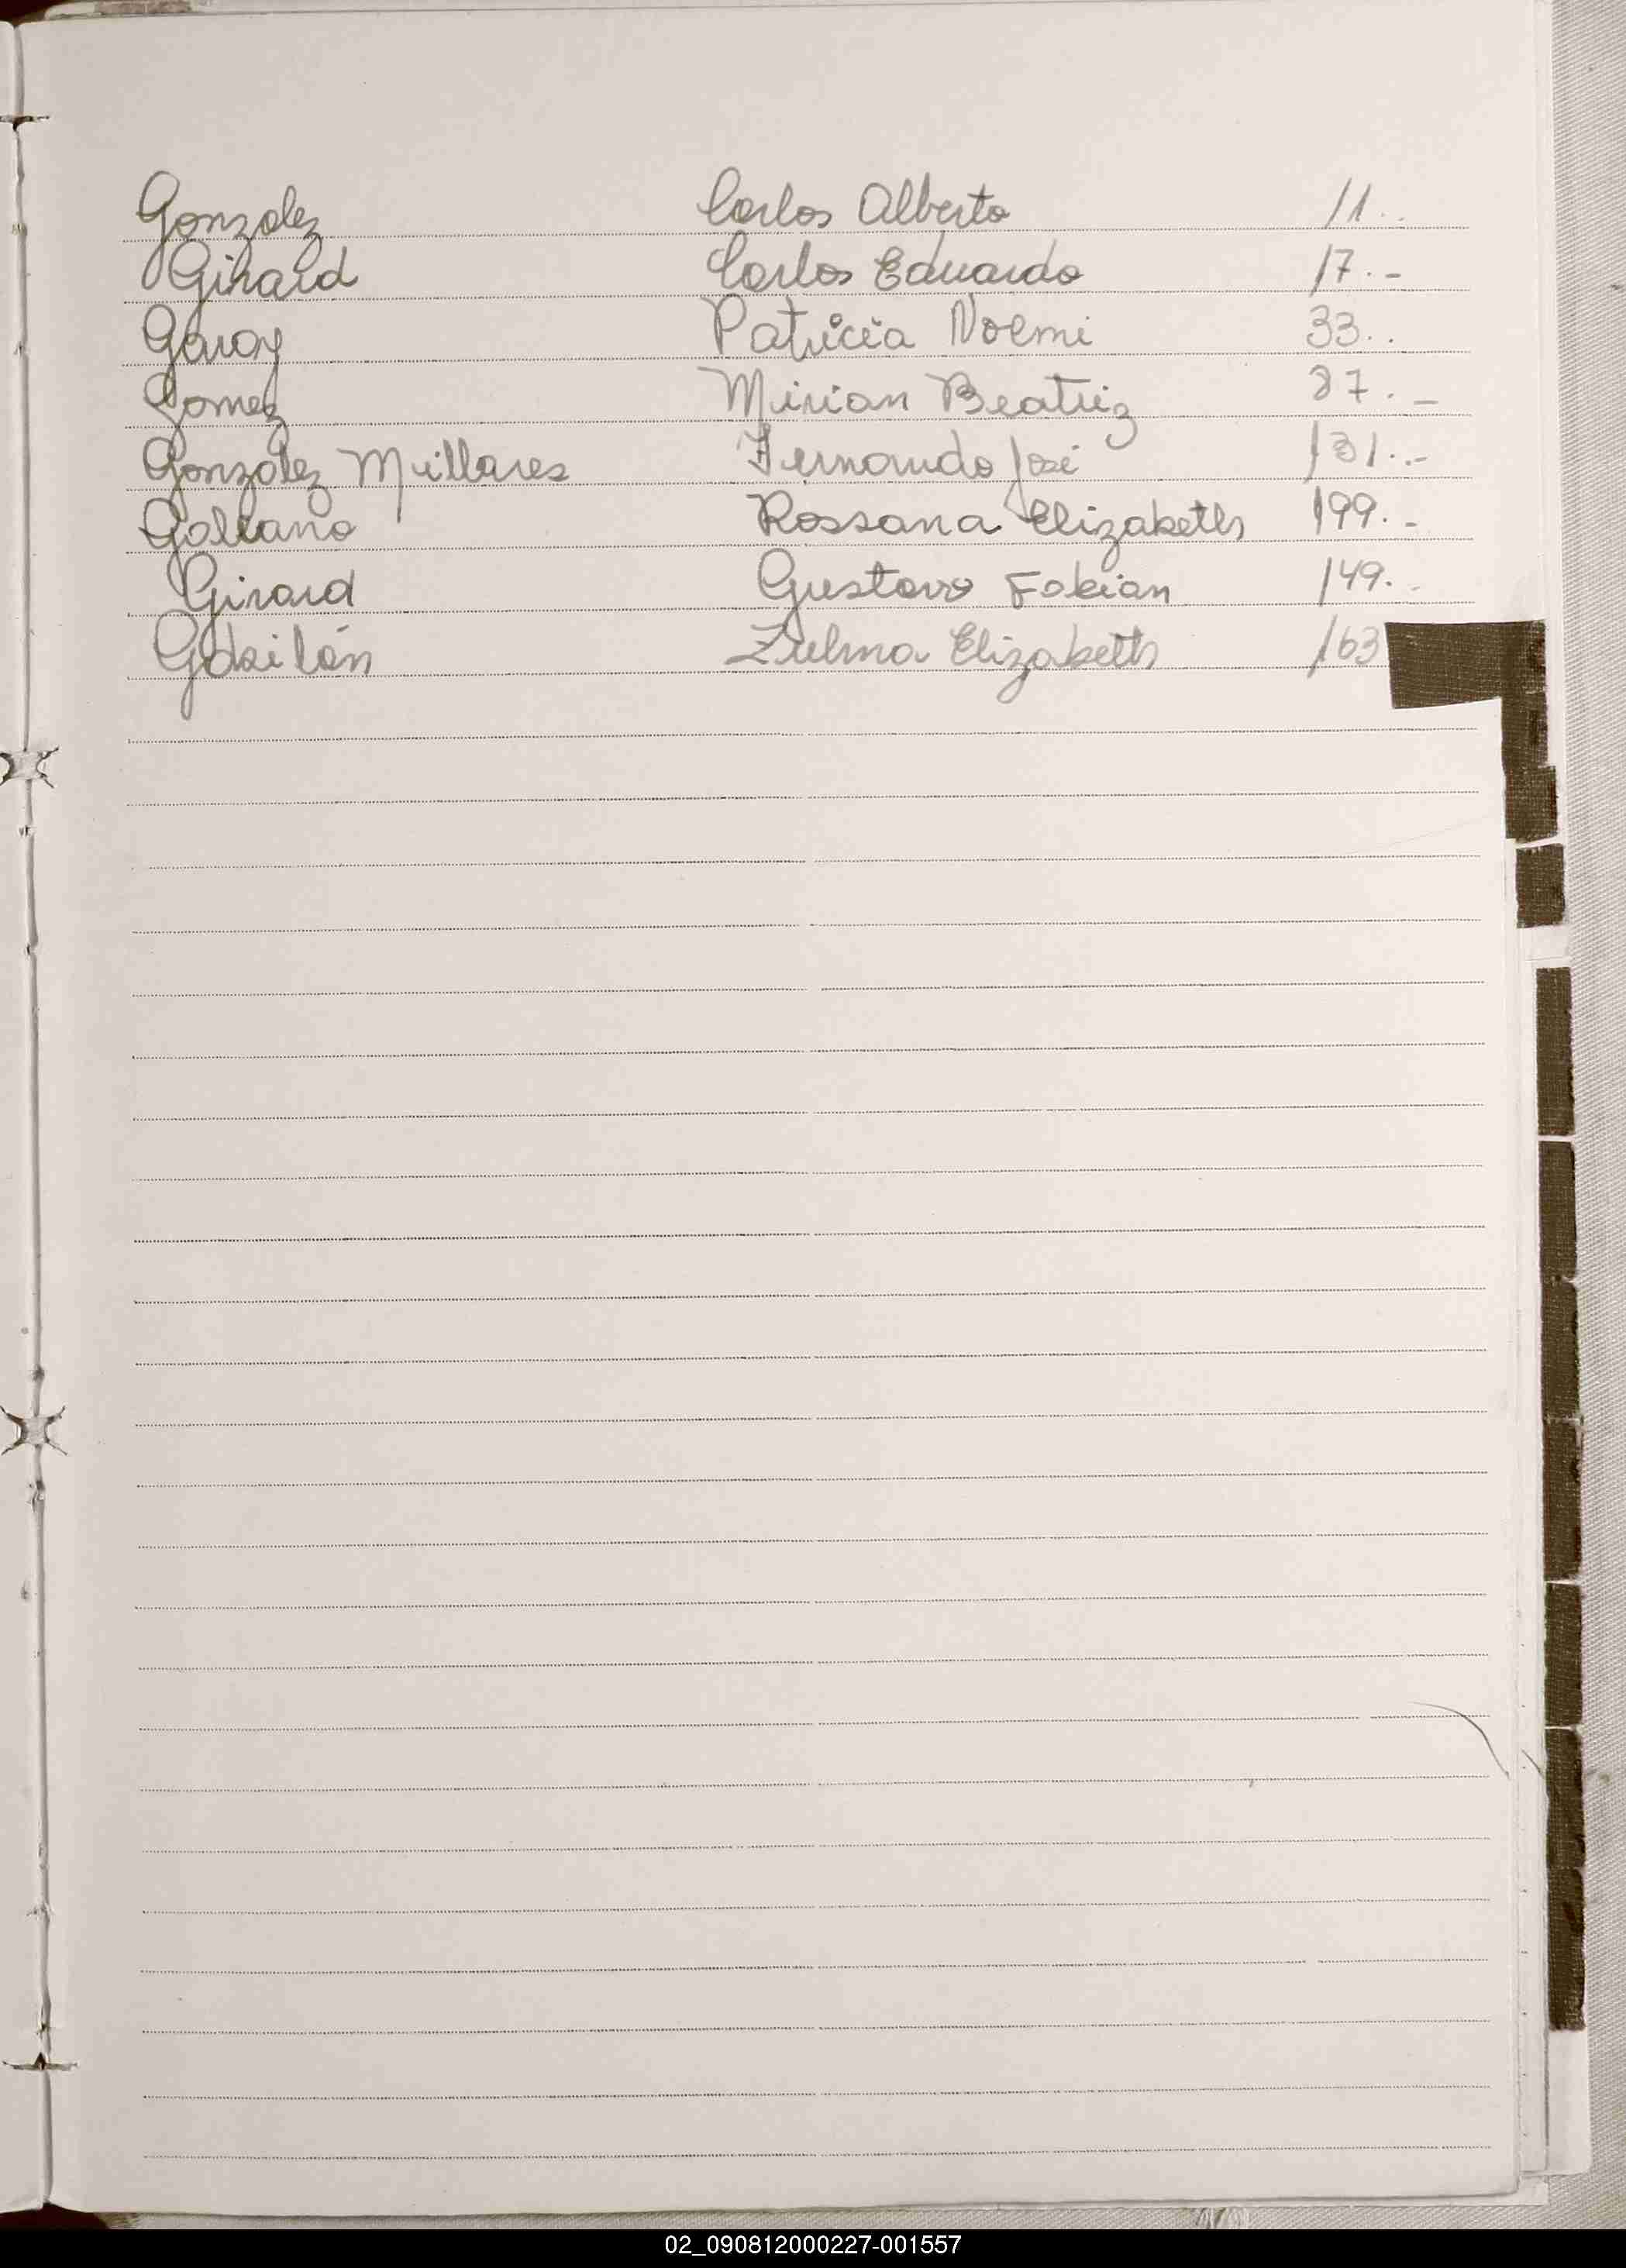 Gonzalez Carlos Alberto 11..
Girard Carlos Eduardo 17.-
Garay Patricia Noemi 33..
Gomez Mirian Beatriz 87.-
Gonzalez Millares Fernando José 131..-
Galeano Rossana Elizabeth 199.-
Girard Gustavo Fabian 149.-
Zulma Elizabeth 163
02_090812000227-001557